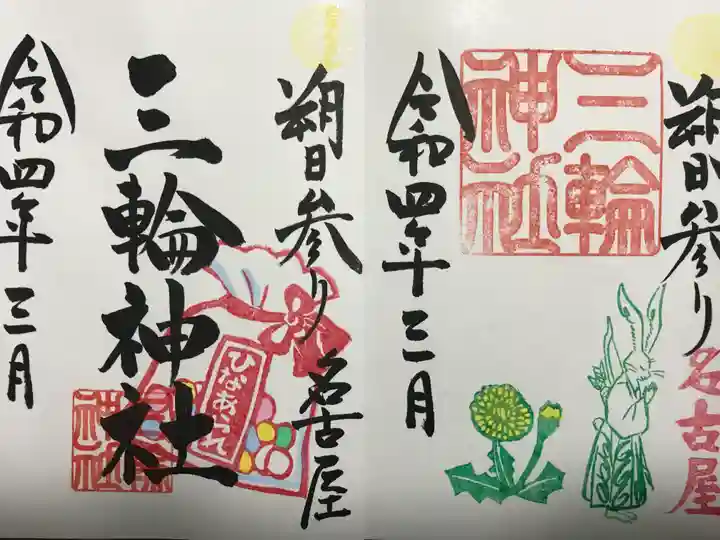 朔日参り 名古屋
三輪神社
三輪神社
ひなあられ
令和四年三月
朔日参り
名古屋
三輪神社
令和四年三月